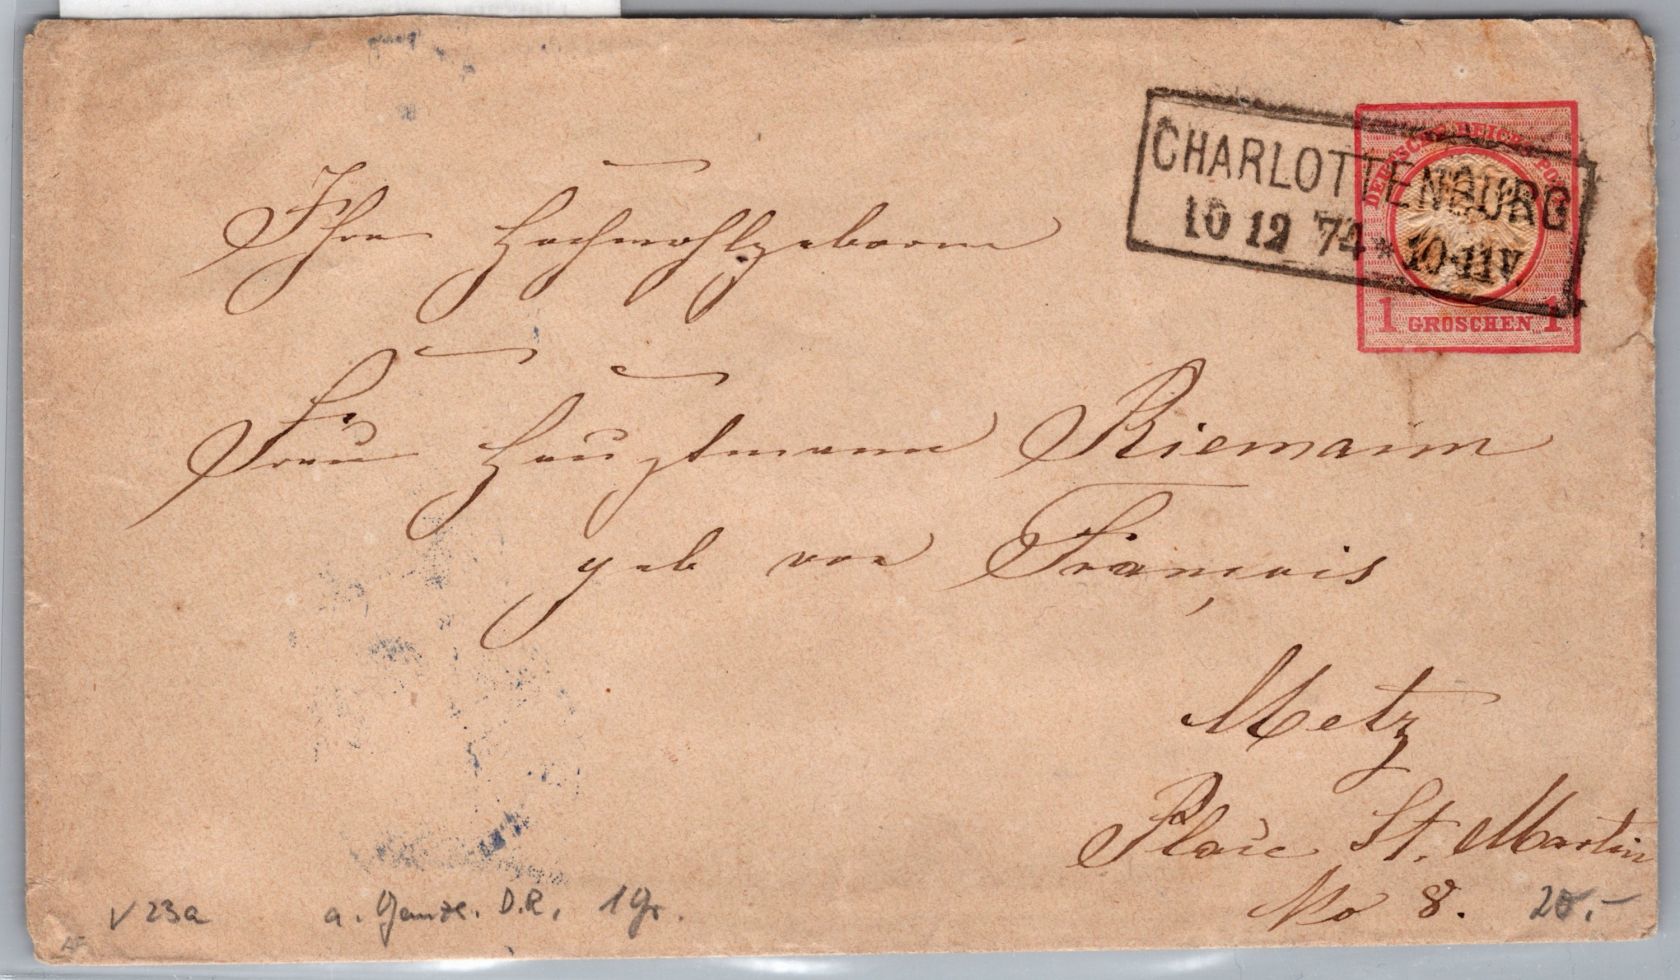 CHARLOTTENBURG
10 12 74 * 10-11V.
DEUTSCHE REICHS-POST
1 GROSCHEN 1
Ihre Hochwohlgeboren
Frau Hauptmann Riemann
geb von François
Metz
Place St. Martin
No 8.
V 23a
a. Ganzs. D.R. 1 Gr.
20.-